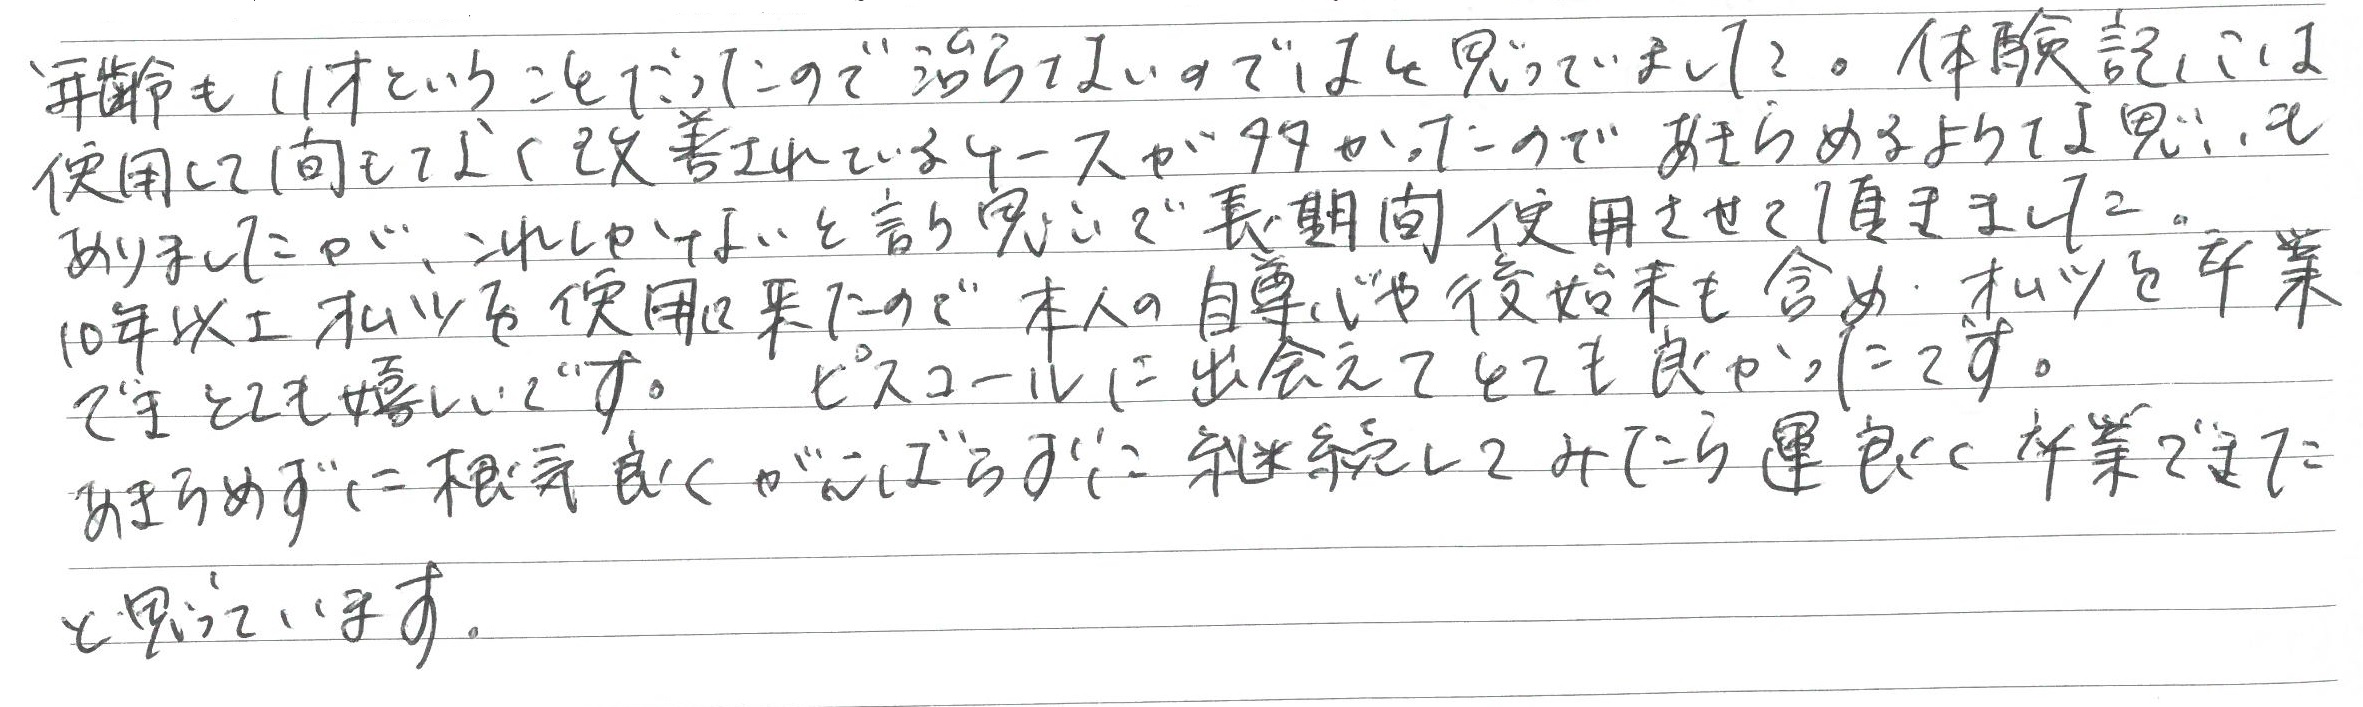 年齢も11才ということだったので治らないのではと思っていました。体験記には
使用して間もなく改善されているケースが多かったのであきらめるような思いも
ありましたが、これしかないと言う思いで長期間使用させて頂きました。
10年以上オムツを使用して来たので本人の自尊心や後始末も含め、オムツを卒業
できとても嬉しいです。 ピスコールに出会えてとても良かったです。
あきらめずに根気良くがんばらずに継続してみたら運良く卒業できた
と思っています。